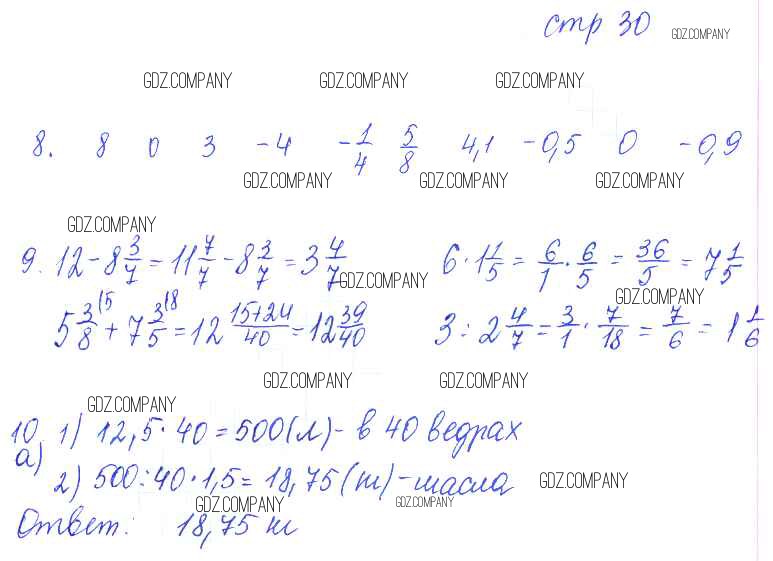 стр 30 GDZ.COMPANY
GDZ.COMPANY GDZ.COMPANY GDZ.COMPANY
8. 8 0 3 -4 -1/4 5/8 4,1 -0,5 0 -0,9
GDZ.COMPANY GDZ.COMPANY GDZ.COMPANY
GDZ.COMPANY
9. 12 - 8 3/7 = 11 7/7 - 8 3/7 = 3 4/7 6 · 1 1/5 = 6/1 · 6/5 = 36/5 = 7 1/5
GDZ.COMPANY GDZ.COMPANY
5 3/8 (5 + 7 3/5 (8 = 12 15+24/40 = 12 39/40 3 : 2 4/7 = 3/1 · 7/18 = 7/6 = 1 1/6
GDZ.COMPANY GDZ.COMPANY
GDZ.COMPANY
10 1) 12,5 · 40 = 500 (л) - в 40 ведрах
а)
2) 500 : 40 · 1,5 = 18,75 (кг) - масла GDZ.COMPANY
GDZ.COMPANY GDZ.COMPANY
Ответ: 18,75 кг